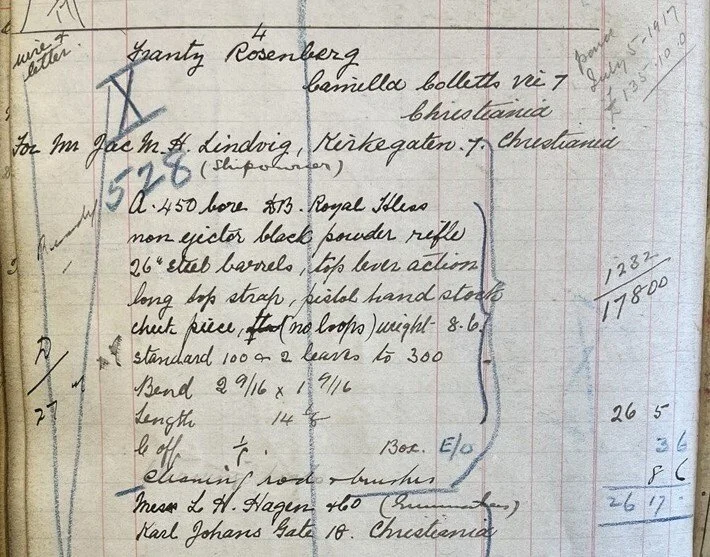 4
wire &
letter.
Frantz Rosenberg
Camilla Colletts Vei 7
Christiania
paid
July 5-1917
£135.10.0
X
For Mr Jac M. H. Lindvig, Kirkegaten 7. Christiania
528 (Shipowner)
A .450 bore DB. Royal Hless
non ejector black powder rifle
26" steel barrels, top lever action
long top strap, pistol hand stock
cheek piece, (no loops) weight 8.6.
standard 100 & 2 leaves to 300
1232
17800
Bend 2 9/16 x 1 9/16
Length 14
26 5
27
C off Box. E/O
3 6
cleaning rod & brushes
8 6
Messr L. H. Hagen & Co
26 17 -
Karl Johans Gate 18. Christiania